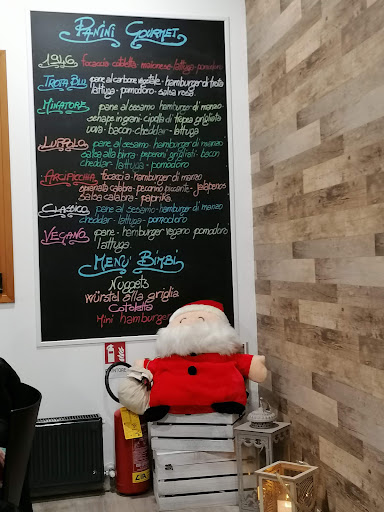 Panini Gourmet
1946 focaccia - cotoletta - maionese - lattuga - pomodoro
Trota Blu pane al carbone vegetale - hamburger di trota
lattuga - pomodoro - salsa rosa
Minatore pane al sesamo hamburger di manzo
senape in grani - cipolla di Tropea grigliata
uova - bacon - cheddar - lattuga
Luppolo pane al sesamo - hamburger di manzo
salsa alla birra - peperoni grigliati - bacon
cheddar - lattuga - pomodoro
focaccia - hamburger di manzo
spianata calabra - pecorino piccante - jalapenos
salsa calabra - paprika
Classico pane al sesamo - hamburger di manzo
cheddar - lattuga - pomodoro
Vegano pane - hamburger vegano pomodoro
lattuga
Menu' Bimbi
Nuggets
würstel alla griglia
Cotoletta
Mini hamburger